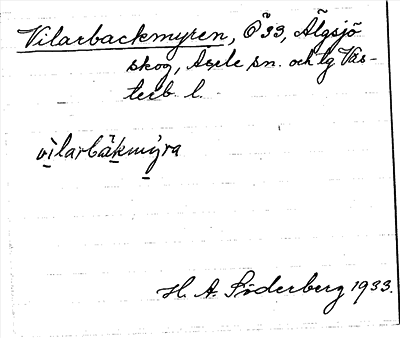 Vilarbackmyren, Ö 33, Älgsjö
skog, Åsele sn. och lg Väs-
terb. l.
vilarbàkmýra
H. A. Söderberg 1933.